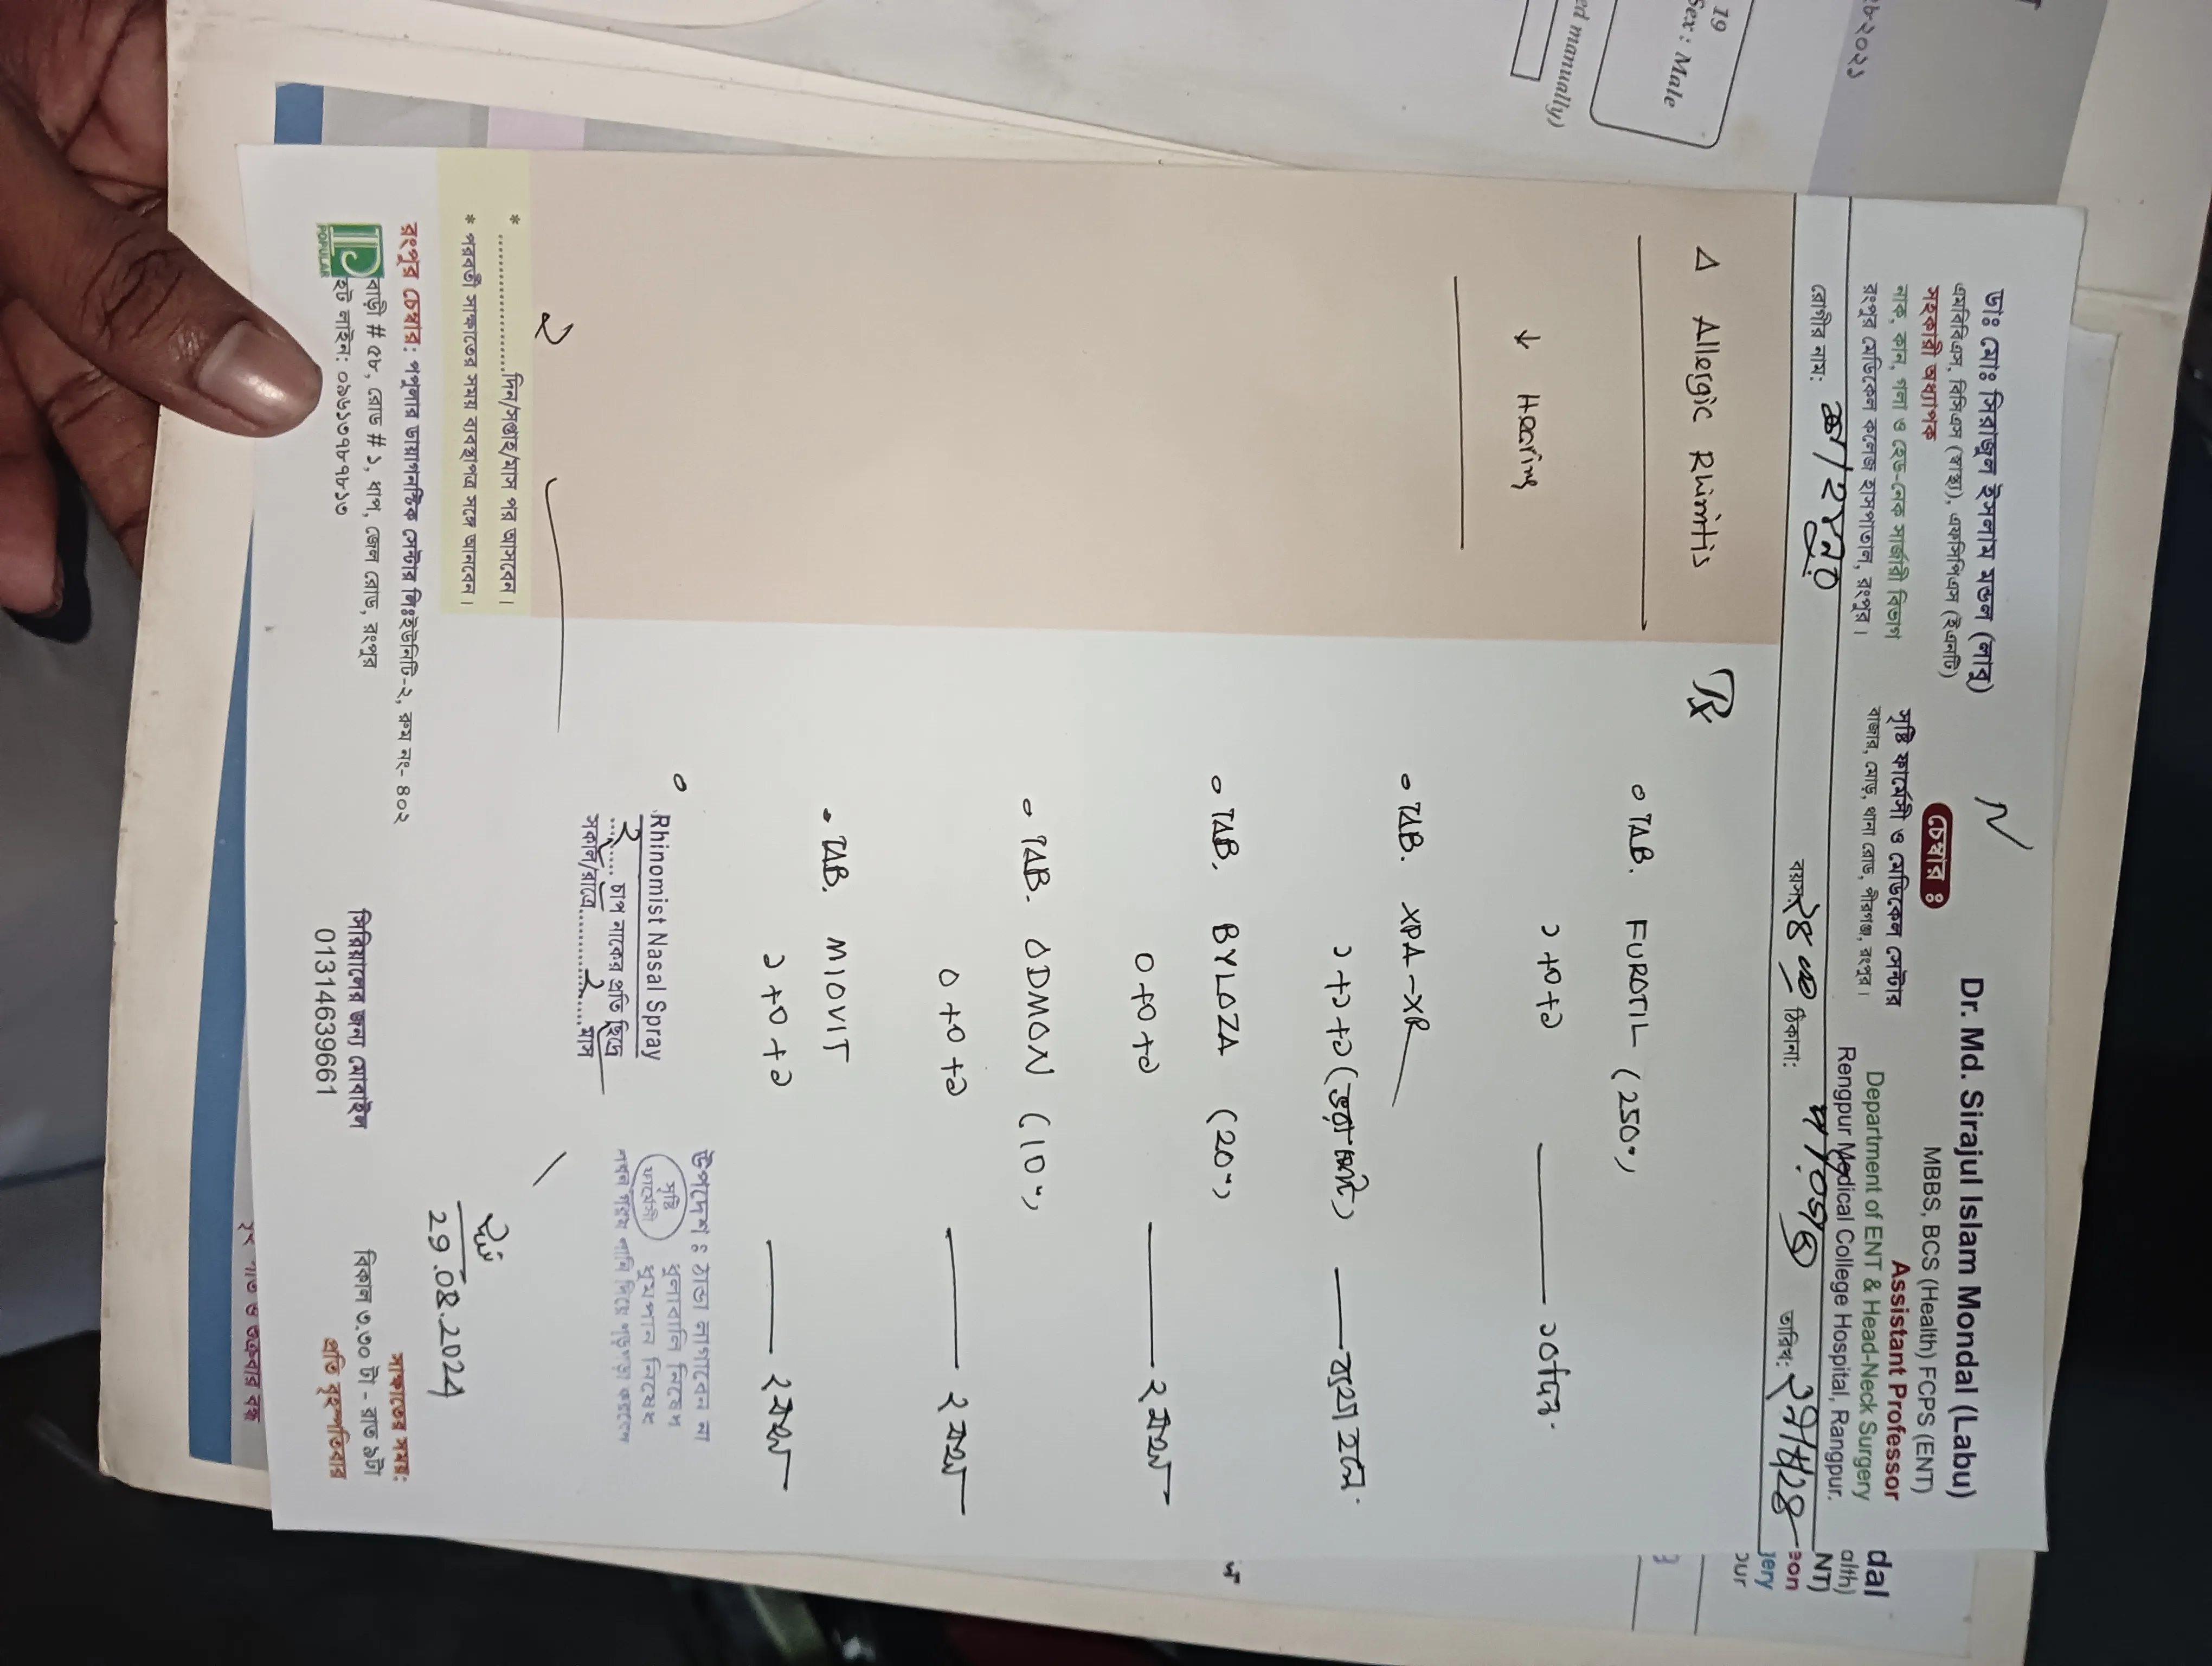 ডাঃ মোঃ সিরাজুল ইসলাম মন্ডল (লাবু)
এমবিবিএস, বিসিএস (স্বাস্থ্য), এফসিপিএস (ইএনটি)
সহকারী অধ্যাপক
নাক, কান, গলা ও হেড-নেক সার্জারী বিভাগ
রংপুর মেডিকেল কলেজ হাসপাতাল, রংপুর।
চেম্বার ঃ
সৃষ্টি ফার্মেসী ও মেডিকেল সেন্টার
বাজার, মোড়, থানা রোড, পীরগঞ্জ, রংপুর।
Dr. Md. Sirajul Islam Mondal (Labu)
MBBS, BCS (Health) FCPS (ENT)
Assistant Professor
Department of ENT & Head-Neck Surgery
Rengpur Medical College Hospital, Rangpur.
রোগীর নাম:
বয়স: ২৪ ঠিকানা:
তারিখ:
Δ Allergic Rhinitis
↓ Hearing
Rx
TAB. FUROTIL (250")
১+০+১ — ১০দিন.
TAB. XPA-XR
১+১+১ (ভরা পেটে) — ব্যথা হলে.
TAB. BYLOZA (20")
০+০+১ — ২ মাস
TAB. ODMON (10")
০+০+১ — ২ মাস
TAB. MIOVIT
১+০+১ — ২ মাস
Rhinomist Nasal Spray
..২.. চাপ নাকের প্রতি ছিদ্রে
সকাল/রাত্রে............২......মাস
উপদেশ ঃ ঠান্ডা লাগাবেন না
ধুলাবালি নিষেধ
ধুমপান নিষেধ
সৃষ্টি
ফার্মেসী
লবন গরম পানি দিয়ে গড়গড়া করবেন
২
* ........................দিন/সপ্তাহ/মাস পর আসবেন।
* পরবর্তী সাক্ষাতের সময় ব্যবস্থাপত্র সঙ্গে আনবেন।
29.08.2024
রংপুর চেম্বার: পপুলার ডায়াগনস্টিক সেন্টার লিঃইউনিট-২, রুম নং- ৪০২
বাড়ী # ৫৮, রোড # ১, ধাপ, জেল রোড, রংপুর
হট লাইন: ০৯৬১৩৭৮৭৮১৩
POPULAR
সিরিয়ালের জন্য মোবাইল
01314639661
সাক্ষাতের সময়:
বিকাল ৩.৩০ টা - রাত ৯টা
প্রতি বৃহস্পতিবার
19
Sex : Male
ed manually)
dal
alth)
NT)
eon
gery
our